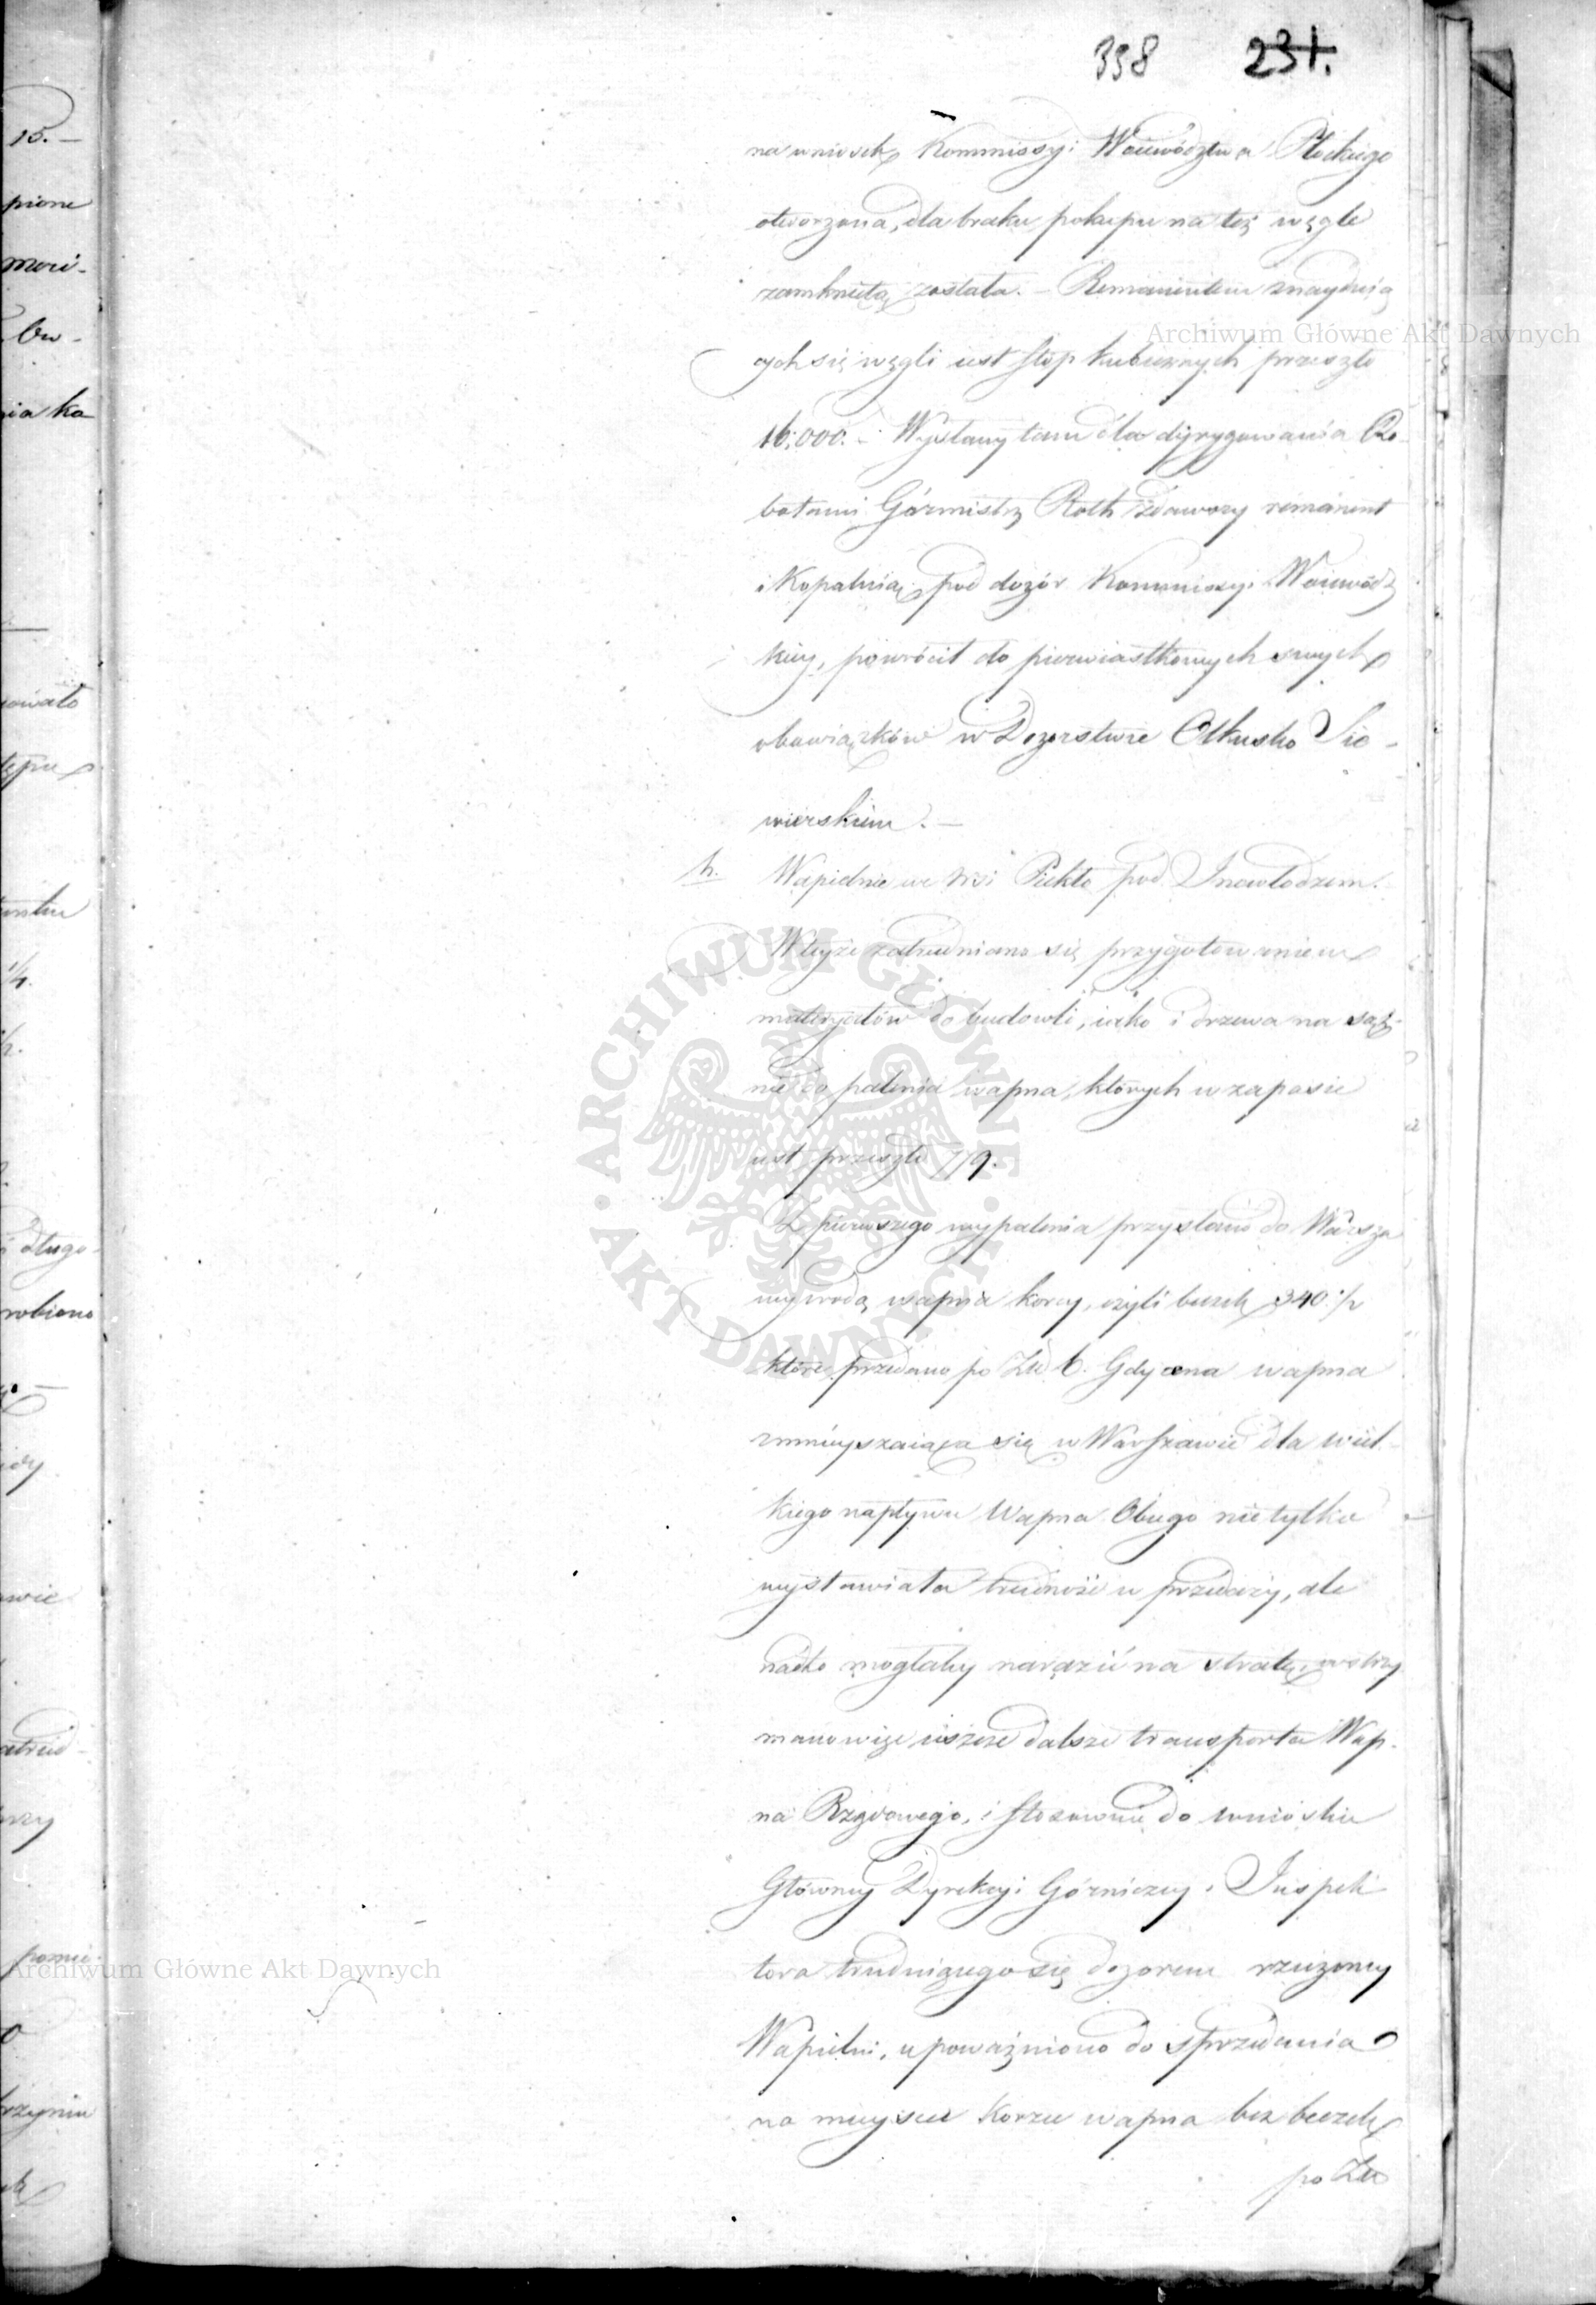 398 231.
na wniosek Kommissyi Woiewództwa Płockiego
otworzona, dla braku pokupu na też węgle
zamkniętą została. – Remanentem znayduią
cych się węgli iest stop kubicznych przeszło
16,000. – Wysłany tam dla dyrygowania Ro-
botami Górmistrz Roth zdawszy remanent
i Kopalnią pod dozór Kommissyi Woiewódz
kiey, powrócił do pierwiastkowych swych
obowiązków w Dozorstwie Olkusko Sie-
wierskiem. –
h. Wapielnie we Wsi Piekło pod Inowłodzem.
W teyże zatrudniano się przygotowaniem
materyałów do budowli, iako i drzewa na sąż-
nie do palenia wapna, których w zapasie
iest przeszło 119.
Z pierwszego wypalenia przysłano do Warsza
wy wodą wapna korcy, czyli beczek 340 1/2
które przedano po Zł 6. Gdy cena wapna
zmnieyszaiąca się w Warszawie dla wiel-
kiego napływu Wapna Obcego nietylko
wystawiała trudność w przedaży, ale
nadto mogłaby narazić na stratę, wstrzy
mano więc ieszcze dalsze transporta Wap-
na Rządowego, i stosownie do wniosku
Główney Dyrekcyi Górniczey i Inspek
tora trudniącego się dozorem rzeczoney
Wapielni, upoważniono do sprzedania
na mieyscu korzec wapna bez beczek
po Zł
15. –
pione
ia ka
owało
1/4.
długo-
robiono
wie
atrud-
rzy
Archiwum Główne Akt Dawnych
ARCHIWUM GŁÓWNE · AKT DAWNYCH ·
Archiwum Główne Akt Dawnych